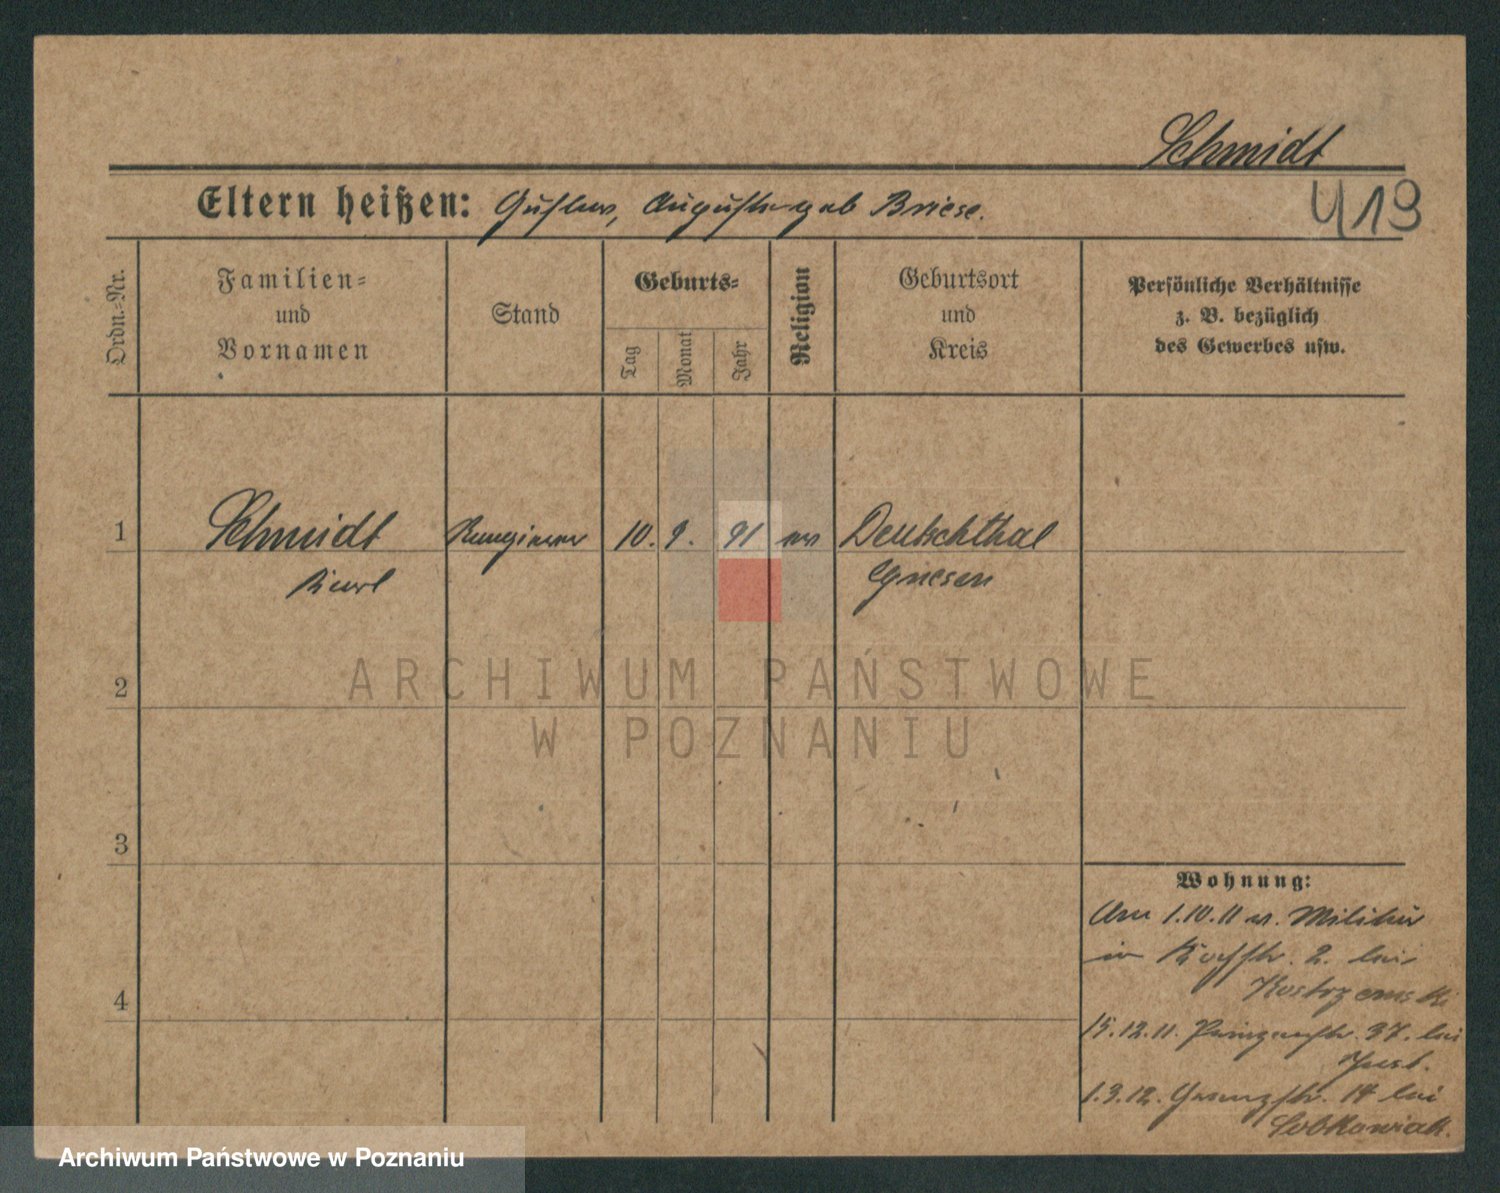 Schmidt
419
Eltern heißen: Gustav, Auguste geb Briese.
Ordn.-Nr.
Familien-
und
Vornamen
Stand
Geburts-
Tag
Monat
Jahr
Religion
Geburtsort
und
Kreis
Persönliche Verhältnisse
z. B. bezüglich
des Gewerbes usw.
1
Schmidt
Karl
Rangierer
10. 9. 91
ev
Deutschthal
Gnesen
2
3
4
Wohnung:
Am 1.10.11 v. Militär
in Kochstr. 2. bei
Kostrzewski
15.12.11. Prinzenstr. 37. bei
Just.
1.3.12. Grenzstr. 14 bei
Sobkowiak.
ARCHIWUM PAŃSTWOWE
W POZNANIU
Archiwum Państwowe w Poznaniu